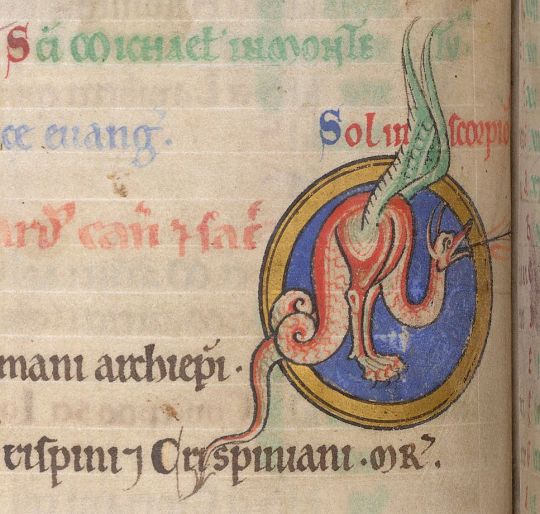 Sc̄i Michael in monte
ce euang̃.
Sol in scorpio
mani archiep̄i.
rispini ⁊ Crispiniani · MR̃.